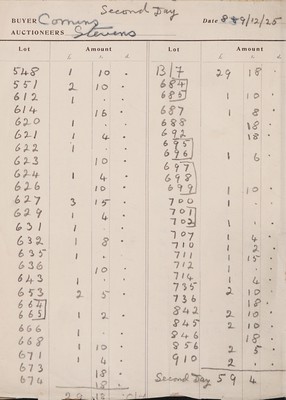 Second Day
BUYER Comins Date 8 & 9/12/25
AUCTIONEERS Stevens
Lot Amount
548 1 10 .
551 2 10 .
612 1 . .
614 16 .
620 1 . .
621 1 4 .
622 1 . .
623 10 .
624 1 4 .
626 10 .
627 3 15 .
629 1 4 .
631 1 . .
632 1 8 .
635 1 . .
636 10 .
643 1 . .
653 2 5 .
664
665 1 2 .
666 1 . .
668 1 10 .
671 1 4 .
673 18 .
674 18 .
29 18
Lot Amount
B/F 29 18 .
684
685 1 10 .
687 1 8 .
688 18 .
692 18 .
695
696 1 6 .
697
698
699 1 10 .
700 1 . .
701
702 1 . .
707 1 4 .
710 1 2 .
711 1 15 .
712 1 . .
714 1 4 .
735 2 10 .
736 18 .
842 2 10 .
845 2 10 .
846 18 .
856 2 5 .
910 2 . .
Second Day 59 4 .